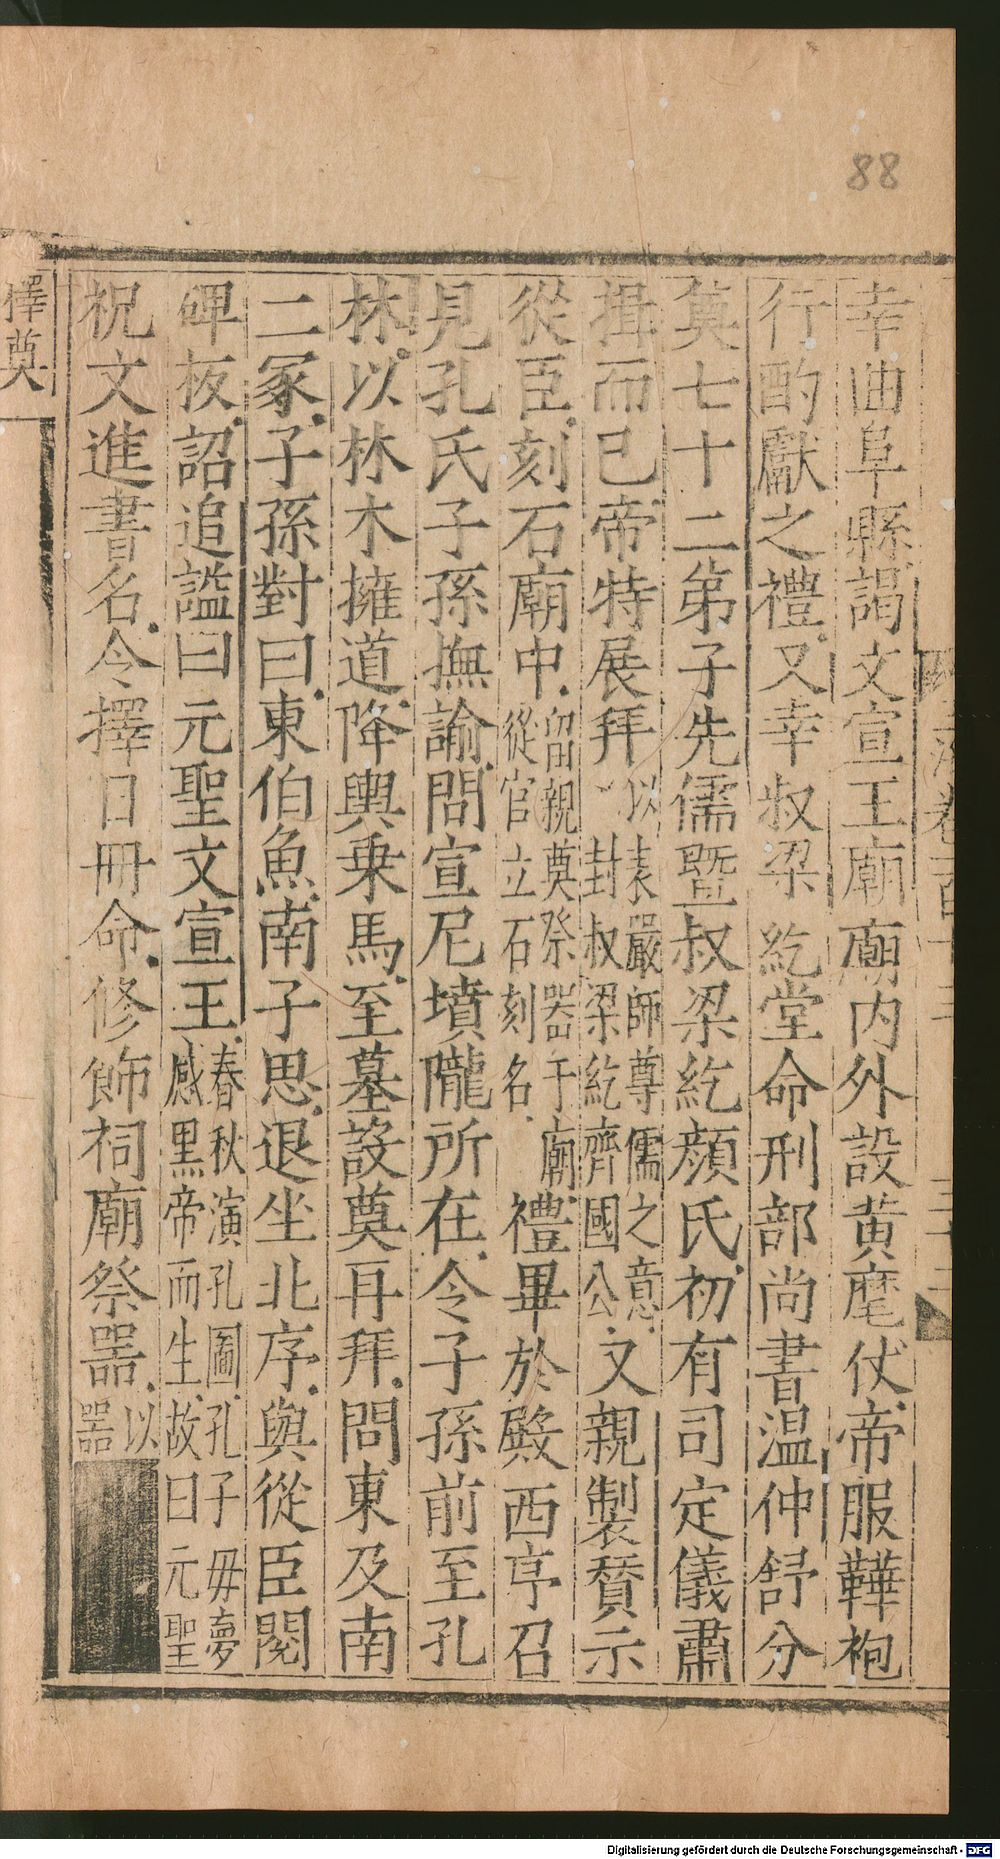 88
幸曲阜縣謁文宣王廟廟内外設黄麾仗帝服鞾袍
行酌獻之禮又幸叔梁紇堂命刑部尚書温仲舒分
奠七十二弟子先儒暨叔梁紇顔氏初有司定儀肅
揖而已帝特展拜以表嚴師尊儒之意
封叔梁紇齊國公又親製賛示
從臣刻石廟中留親奠祭器于廟
從官立石刻名禮畢於殿西亭召
見孔氏子孫撫諭問宣尼墳隴所在令子孫前至孔
林以林木擁道降輿乗馬至墓設奠再拜問東及南
二冢子孫對曰東伯魚南子思退坐北序與從臣閱
碑板詔追謚曰元聖文宣王春秋演孔圖孔子毋夢
感黒帝而生故曰元聖
祝文進書名令擇日冊命修飾祠廟祭器以
器
擇奠
Digitalisierung gefördert durch die Deutsche Forschungsgemeinschaft - DFG